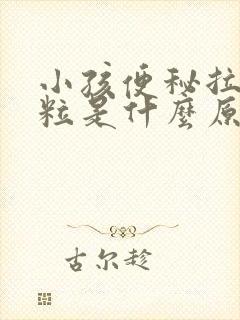 小孩便秘拉
粒是什麼原
古尔趁